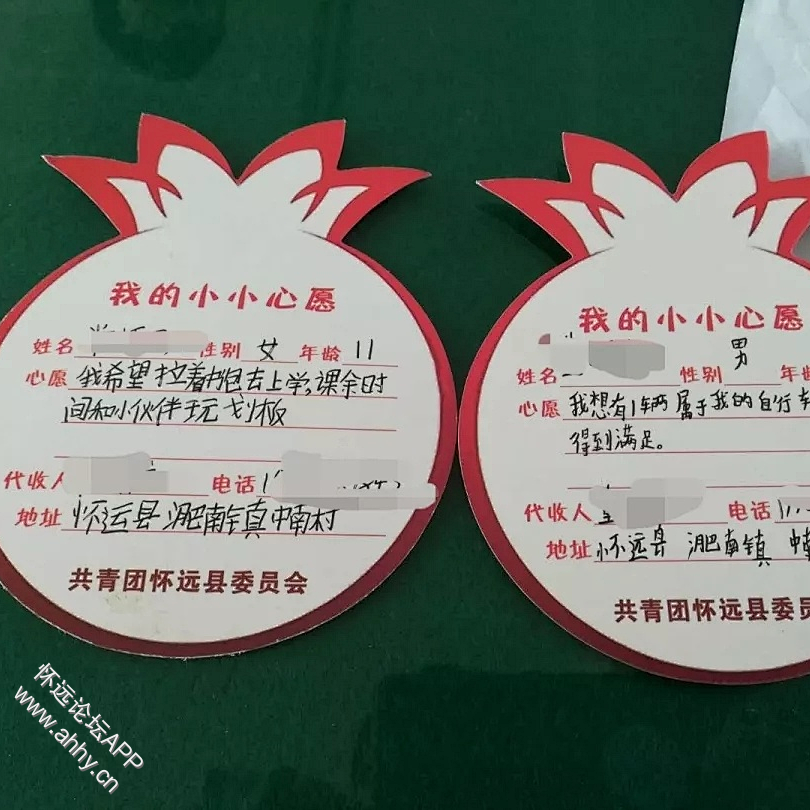 我的小小心愿
姓名 性别 女 年龄 11
心愿 我希望拉着书包去上学,课余时
间和小伙伴玩划板
代收人 电话
地址 怀远县淝南镇中南村
共青团怀远县委员会
我的小小心愿
姓名 性别 男 年龄
心愿 我想有1辆属于我的自行车
得到满足。
代收人 电话
地址 怀远县 淝南镇 中南
共青团怀远县委员
怀远论坛APP
www.ahhy.cn